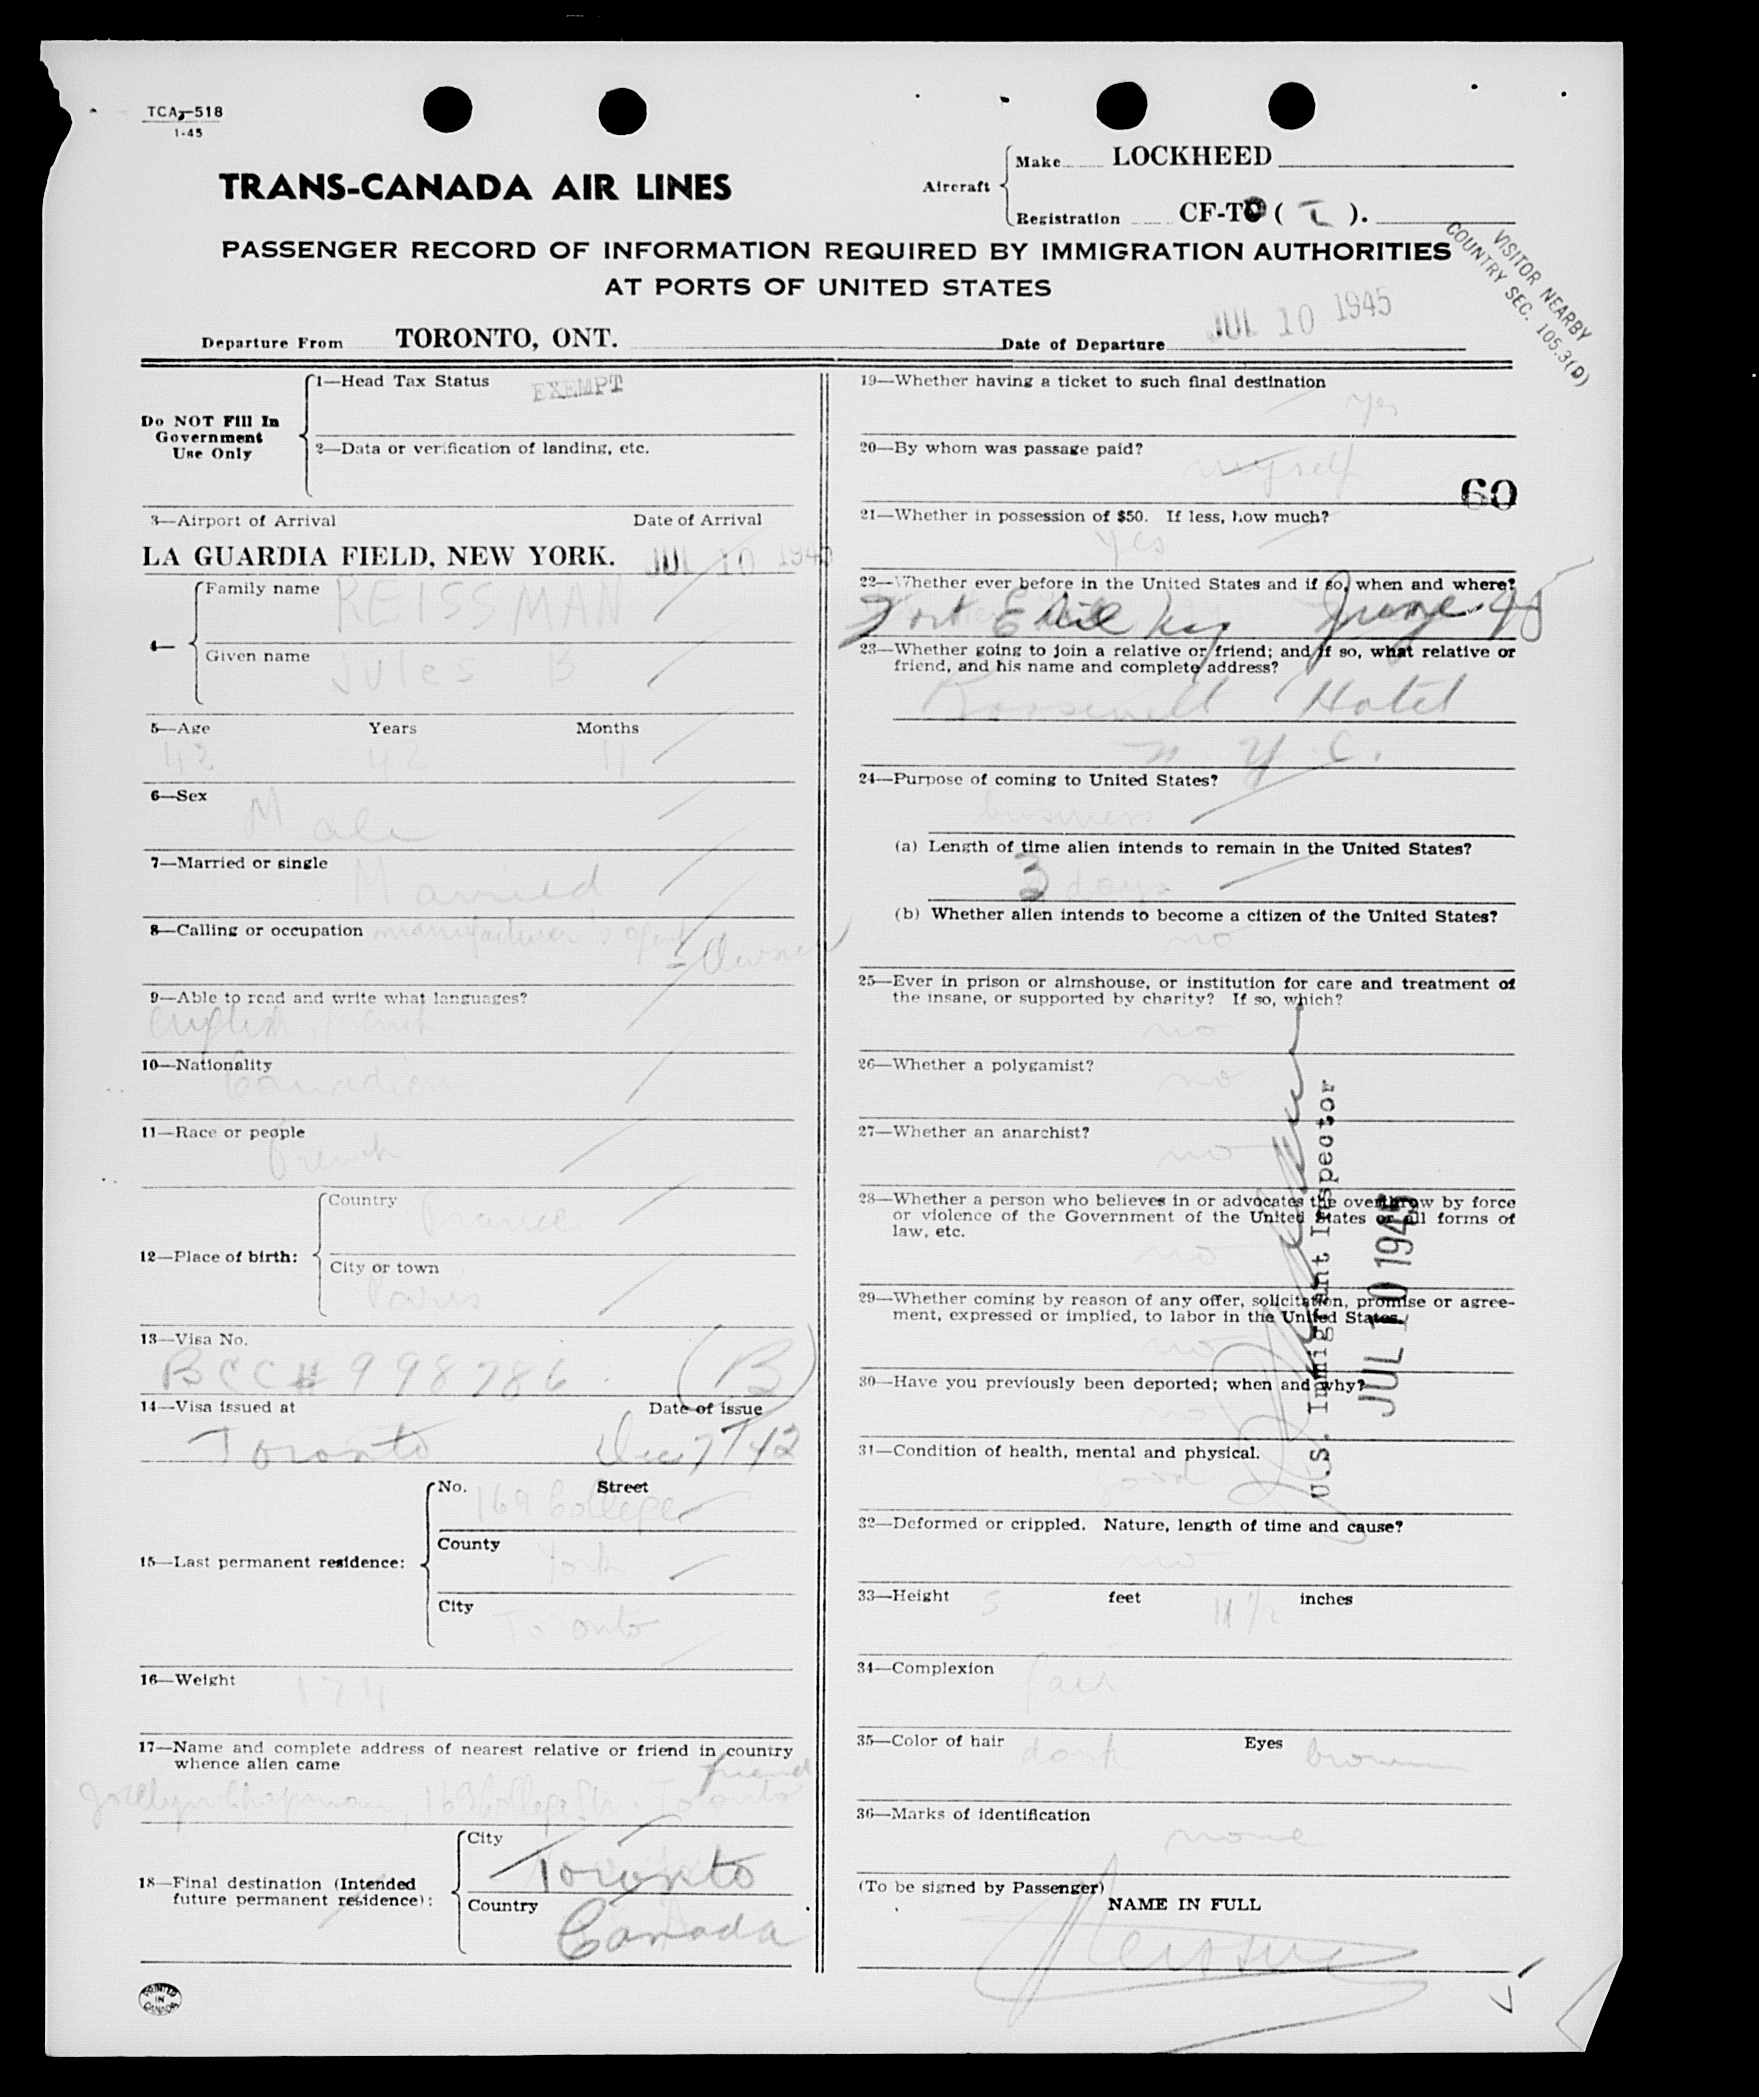 TCA-518
1-45
TRANS-CANADA AIR LINES
Aircraft
Make LOCKHEED
Registration CF-T ( T ).
PASSENGER RECORD OF INFORMATION REQUIRED BY IMMIGRATION AUTHORITIES
AT PORTS OF UNITED STATES
VISITOR NEARBY
COUNTRY SEC. 105.3(D)
Departure From TORONTO, ONT.
Date of Departure JUL 10 1945
Do NOT Fill In
Government
Use Only
1—Head Tax Status EXEMPT
2—Data or verification of landing, etc.
3—Airport of Arrival Date of Arrival
LA GUARDIA FIELD, NEW YORK. JUL 10 1945
4—
Family name REISSMAN
Given name Jules B
5—Age Years Months
42 42 11
6—Sex
Male
7—Married or single
Married
8—Calling or occupation manufacturer's agent
- Owner
9—Able to read and write what languages?
English, French
10—Nationality
Canadian
11—Race or people
French
12—Place of birth:
Country France
City or town
Paris
13—Visa No.
BCC# 998786 (B)
14—Visa issued at Date of issue
Toronto Dec 7/42
15—Last permanent residence:
No. Street
169 College
County
York
City
Toronto
16—Weight
174
17—Name and complete address of nearest relative or friend in country
whence alien came
friend
Jocelyn Chapman, 163 College St. Toronto
18—Final destination (Intended
future permanent residence):
City
Toronto
Country
Canada
PRINTED
IN
CANADA
19—Whether having a ticket to such final destination
yes
20—By whom was passage paid?
myself
60
21—Whether in possession of $50. If less, how much?
yes
22—Whether ever before in the United States and if so, when and where?
Fort Erie June 45
23—Whether going to join a relative or friend; and if so, what relative or
friend, and his name and complete address?
Roosevelt Hotel
N.Y.C.
24—Purpose of coming to United States?
business
(a) Length of time alien intends to remain in the United States?
3 days
(b) Whether alien intends to become a citizen of the United States?
no
25—Ever in prison or almshouse, or institution for care and treatment of
the insane, or supported by charity? If so, which?
no
26—Whether a polygamist?
no
27—Whether an anarchist?
no
28—Whether a person who believes in or advocates the overthrow by force
or violence of the Government of the United States or all forms of
law, etc.
no
29—Whether coming by reason of any offer, solicitation, promise or agree-
ment, expressed or implied, to labor in the United States.
no
30—Have you previously been deported; when and why?
no
31—Condition of health, mental and physical.
good
U.S. Immigrant Inspector
JUL 10 1945
32—Deformed or crippled. Nature, length of time and cause?
no
33—Height 5 feet 11 1/2 inches
34—Complexion
fair
35—Color of hair dark Eyes brown
36—Marks of identification
none
(To be signed by Passenger)
NAME IN FULL